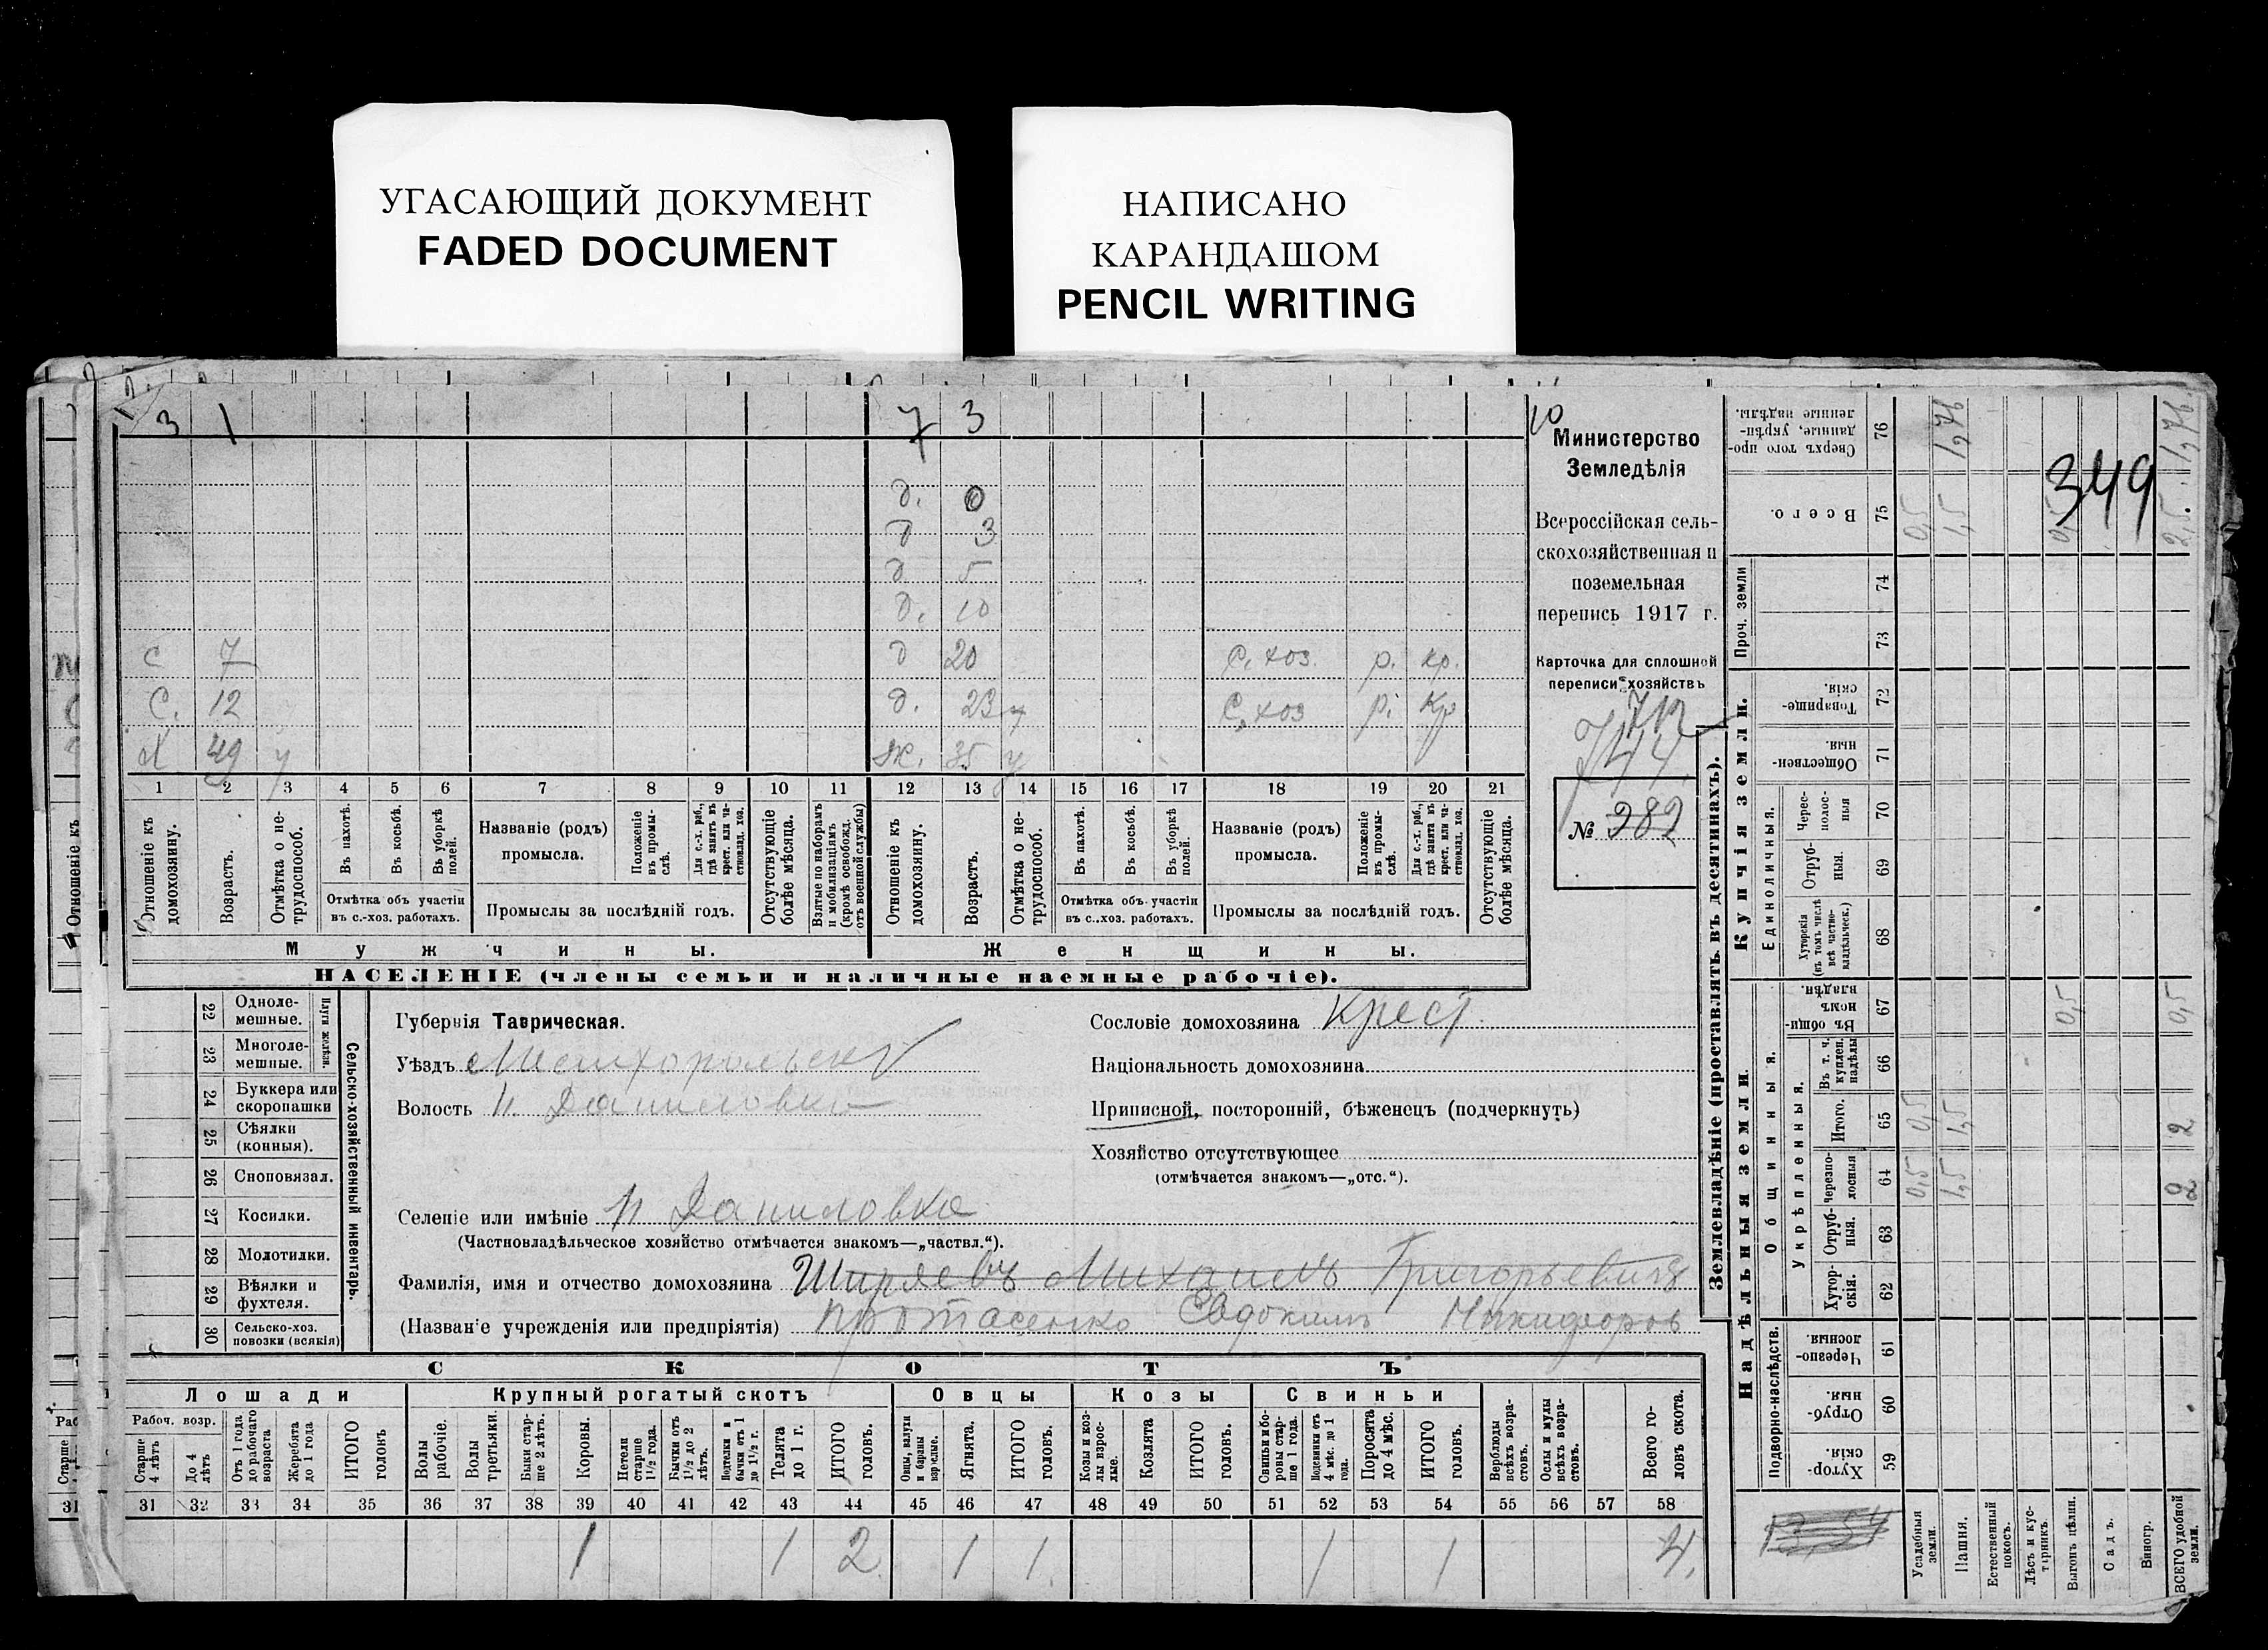 УГАСАЮЩИЙ ДОКУМЕНТ
FADED DOCUMENT
НАПИСАНО
КАРАНДАШОМ
PENCIL WRITING
3 1 7 3
д. 0
д 3
д 5
д. 10
с 7 д 20 С. хоз. р. кр.
С. 12 д. 23 у С. хоз р. Кр
Х 49 у ж. 35 у
1 2 3 4 5 6 7 8 9 10 11 12 13 14 15 16 17 18 19 20 21
Отношеніе къ домохозяину.
Возрастъ.
Отмѣтка о не-трудоспособ.
Въ пахотѣ.
Въ косьбѣ.
Въ уборкѣ полей.
Отмѣтка объ участіи
въ с.-хоз. работахъ.
Названіе (родъ)
промысла.
Положеніе въ промы-слѣ.
Для с.-х. раб., гдѣ занятъ въ крест. или ча-стновлад. хоз.
Промыслы за послѣдній годъ.
Отсутствующіе болѣе мѣсяца.
Взятые по наборамъ и мобилизаціямъ (кромѣ освобожд. отъ военной службы)
Отношеніе къ домохозяину.
Возрастъ.
Отмѣтка о не-трудоспособ.
Въ пахотѣ.
Въ косьбѣ.
Въ уборкѣ полей.
Отмѣтка объ участіи
въ с.-хоз. работахъ.
Названіе (родъ)
промысла.
Положеніе въ промы-слѣ.
Для с.-х. раб., гдѣ занята въ крест. или ча-стновлад. хоз.
Промыслы за послѣдній годъ.
Отсутствующіе болѣе мѣсяца.
Мужчины.
Женщины.
НАСЕЛЕНІЕ (члены семьи и наличные наемные рабочіе).
10
Министерство
Земледѣлія
Всероссійская сель-
скохозяйственная и
поземельная
перепись 1917 г.
Карточка для сплошной
переписи хозяйствъ
712
744
№ 282
22 Одноле-мешные.
23 Многоле-мешные.
Плуги желѣзн.
24 Буккера или скоропашки
25 Сѣялки (конныя).
26 Сноповязал.
27 Косилки.
28 Молотилки.
29 Вѣялки и фухтеля.
30 Сельско-хоз. повозки (всякія)
Сельско-хозяйственный инвентарь.
Губернія Таврическая.
Уѣздъ Мелитопольск
Волость Н. Даниловка
Селеніе или имѣніе Н Даниловка
(Частновладѣльческое хозяйство отмѣчается знакомъ—„частвл.“).
Фамилія, имя и отчество домохозяина Ширяевъ Михаилъ Григорьевичъ
(Названіе учрежденія или предпріятія) Протасенко Евдокимъ Никифоров
Сословіе домохозяина Крест.
Національность домохозяина
Приписной, посторонній, бѣженецъ (подчеркнуть)
Хозяйство отсутствующее
(отмѣчается знакомъ—„отс.“).
СКОТЪ
Лошади
Крупный рогатый скотъ
Овцы
Козы
Свиньи
Рабоч. возр.
Старше 4 лѣтъ
До 4 лѣтъ
Отъ 1 года до рабочаго возраста
Жеребята до 1 года
ИТОГО головъ
Волы рабочіе.
Волы третьяки.
Быки стар-ше 2 лѣтъ.
Коровы.
Нетели старше 1½ года.
Бычки отъ 1½ до 2 лѣтъ.
Подтелки и бычки отъ 1 до 1½ г.
Телята до 1 г.
ИТОГО головъ.
Овцы, валухи и бараны взрослые.
Ягнята.
ИТОГО головъ.
Козы и коз-лы взрос-лые.
Козлята
ИТОГО головъ.
Свиньи бо-ровы стар-ше 1 года.
Подсвинки отъ 4 мѣс. до 1 года.
Поросята до 4 мѣс.
ИТОГО головъ.
Верблюды всѣхъ возра-стовъ.
Ослы и мулы всѣхъ возра-стовъ.
Всего го-ловъ скота.
31 32 33 34 35 36 37 38 39 40 41 42 43 44 45 46 47 48 49 50 51 52 53 54 55 56 57 58
1 1 2 1 1 1 1 4.
Землевладѣніе (проставлять въ десятинахъ).
Надѣльныя земли.
Купчія земли.
Проч. земли
Подворно-наслѣдств.
Общинныя.
Укрѣпленныя.
Единоличныя.
76 Сверхъ того про-данные, укрѣп-ленные надѣлы. 1,76 1,76.
75 Всего. 0,5 1,5 0,5 2,5.
349
74
73
72 Товарище-скія.
71 Обществен-ныя.
70 Черес-полос-ныя
69 Отруб-ныя.
68 Хуторскія (въ томъ числѣ всѣ частно-владѣльческ.)
67 Въ общи-номъ владѣн. 0,5 0,5
66 Въ т. ч. куплен. надѣлы
65 Итого. 0,5 1,5 2
64 Черезпо-лосныя 0,5 1,5
63 Отруб-ныя.
62 Хутор-скія.
61 Черезпо-лосныя
60 Отруб-ныя.
59 Хутор-скія
13,54
Усадебныя земли.
Пашня.
Естественный покосъ.
Лѣсъ и кус-тарникъ.
Выгонъ цѣлин.
Садъ.
Виногр.
ВСЕГО удобной земли.